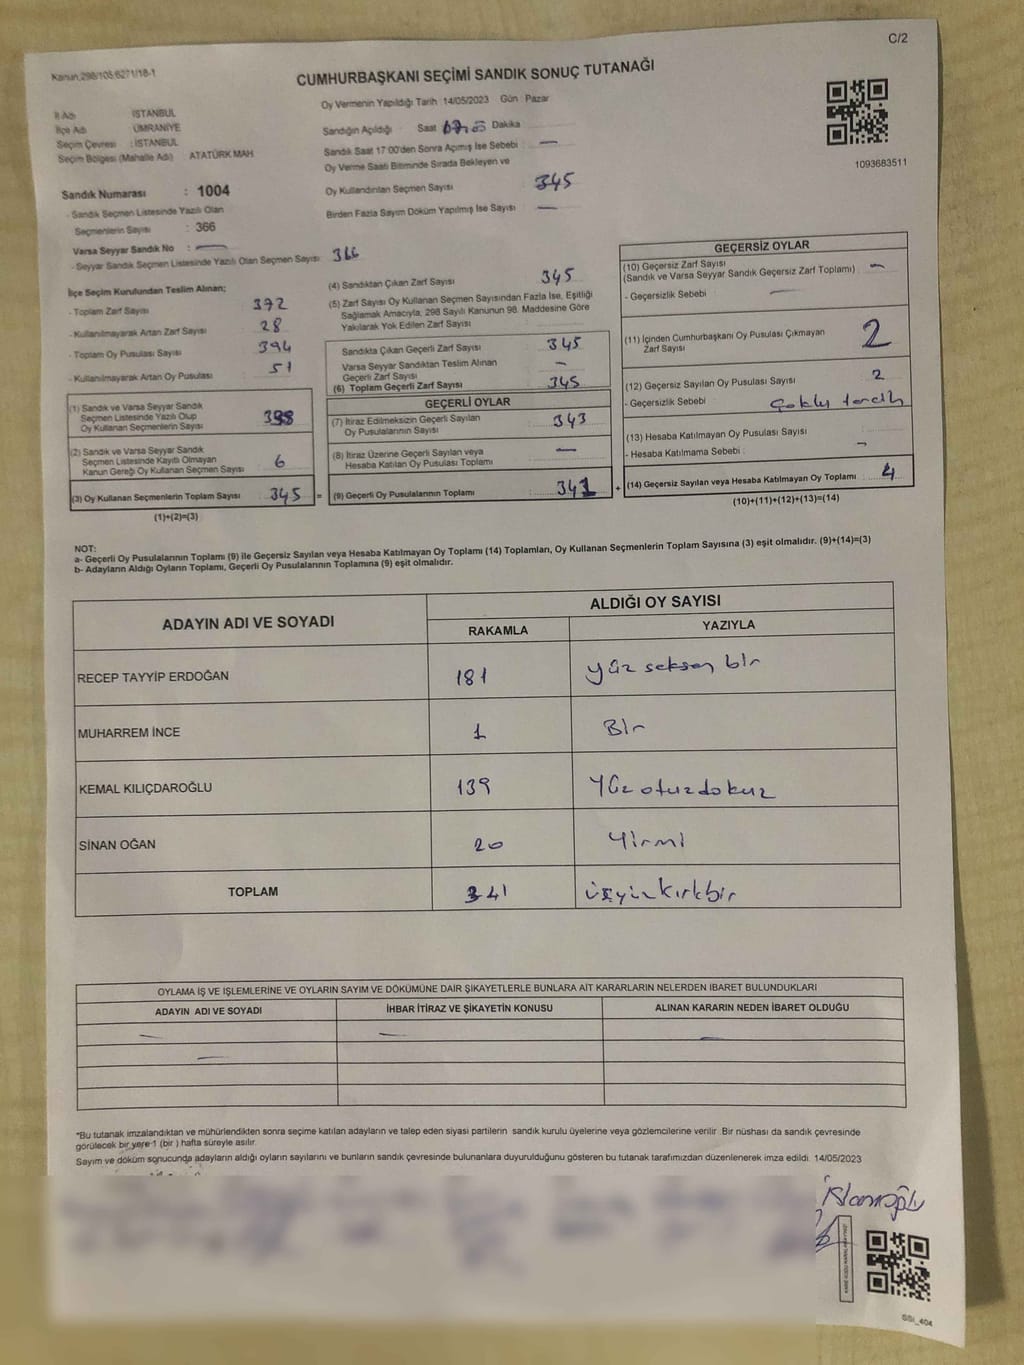 C/2
Kanun;298/105;6271/18-1
CUMHURBAŞKANI SEÇİMİ SANDIK SONUÇ TUTANAĞI
İl Adı : İSTANBUL
İlçe Adı : ÜMRANİYE
Seçim Çevresi : İSTANBUL
Seçim Bölgesi (Mahalle Adı) ATATÜRK MAH
Sandık Numarası : 1004
- Sandık Seçmen Listesinde Yazılı Olan
Seçmenlerin Sayısı : 366
Varsa Seyyar Sandık No : —
- Seyyar Sandık Seçmen Listesinde Yazılı Olan Seçmen Sayısı : 366
Oy Vermenin Yapıldığı Tarih 14/05/2023 Gün Pazar
Sandığın Açıldığı Saat Dakika
Sandık Saat 17:00'den Sonra Açımış İse Sebebi : —
Oy Verme Saati Bitiminde Sırada Bekleyen ve
Oy Kullandırılan Seçmen Sayısı : 345
Birden Fazla Sayım Döküm Yapılmış İse Sayısı : —
1093683511
İlçe Seçim Kurulundan Teslim Alınan;
- Toplam Zarf Sayısı : 372
- Kullanılmayarak Artan Zarf Sayısı : 28
- Toplam Oy Pusulası Sayısı : 394
- Kullanılmayarak Artan Oy Pusulası : 51
(1) Sandık ve Varsa Seyyar Sandık
Seçmen Listesinde Yazılı Olup
Oy Kullanan Seçmenlerin Sayısı
(2) Sandık ve Varsa Seyyar Sandık
Seçmen Listesinde Kayıtlı Olmayan
Kanun Gereği Oy Kullanan Seçmen Sayısı 6
(3) Oy Kullanan Seçmenlerin Toplam Sayısı : 345 =
(1)+(2)=(3)
(4) Sandıktan Çıkan Zarf Sayısı : 345
(5) Zarf Sayısı Oy Kullanan Seçmen Sayısından Fazla İse, Eşitliği
Sağlamak Amacıyla, 298 Sayılı Kanunun 98. Maddesine Göre
Yakılarak Yok Edilen Zarf Sayısı
Sandıkta Çıkan Geçerli Zarf Sayısı : 345
Varsa Seyyar Sandıktan Teslim Alınan
Geçerli Zarf Sayısı : —
(6) Toplam Geçerli Zarf Sayısı : 345
GEÇERLİ OYLAR
(7) İtiraz Edilmeksizin Geçerli Sayılan
Oy Pusulalarının Sayısı : 343
(8) İtiraz Üzerine Geçerli Sayılan veya
Hesaba Katılan Oy Pusulası Toplamı : —
(9) Geçerli Oy Pusulalarının Toplamı : 341 +
GEÇERSİZ OYLAR
(10) Geçersiz Zarf Sayısı
(Sandık ve Varsa Seyyar Sandık Geçersiz Zarf Toplamı) : —
- Geçersizlik Sebebi : —
(11) İçinden Cumhurbaşkanı Oy Pusulası Çıkmayan
Zarf Sayısı 2
(12) Geçersiz Sayılan Oy Pusulası Sayısı : 2
- Geçersizlik Sebebi : Çoklu tercih
(13) Hesaba Katılmayan Oy Pusulası Sayısı :
- Hesaba Katılmama Sebebi : —
(14) Geçersiz Sayılan veya Hesaba Katılmayan Oy Toplamı : 4
(10)+(11)+(12)+(13)=(14)
NOT:
a- Geçerli Oy Pusulalarının Toplamı (9) ile Geçersiz Sayılan veya Hesaba Katılmayan Oy Toplamı (14) Toplamları, Oy Kullanan Seçmenlerin Toplam Sayısına (3) eşit olmalıdır. (9)+(14)=(3)
b- Adayların Aldığı Oyların Toplamı, Geçerli Oy Pusulalarının Toplamına (9) eşit olmalıdır.
ADAYIN ADI VE SOYADI ALDIĞI OY SAYISI
RAKAMLA YAZIYLA
RECEP TAYYİP ERDOĞAN 181 yüz seksen bir
MUHARREM İNCE 1 Bir
KEMAL KILIÇDAROĞLU 139 Yüz otuz dokuz
SİNAN OĞAN 20 Yirmi
TOPLAM 341 üçyüz kırk bir
OYLAMA İŞ VE İŞLEMLERİNE VE OYLARIN SAYIM VE DÖKÜMÜNE DAİR ŞİKAYETLERLE BUNLARA AİT KARARLARIN NELERDEN İBARET BULUNDUKLARI
ADAYIN ADI VE SOYADI İHBAR İTİRAZ VE ŞİKAYETİN KONUSU ALINAN KARARIN NEDEN İBARET OLDUĞU
*Bu tutanak imzalandıktan ve mühürlendikten sonra seçime katılan adayların ve talep eden siyasi partilerin sandık kurulu üyelerine veya gözlemcilerine verilir .Bir nüshası da sandık çevresinde
görülecek bir yere 1 (bir ) hafta süreyle asılır.
Sayım ve döküm sonucunda adayların aldığı oyların sayılarını ve bunların sandık çevresinde bulunanlara duyurulduğunu gösteren bu tutanak tarafımızdan düzenlenerek imza edildi. 14/05/2023
SSI_404